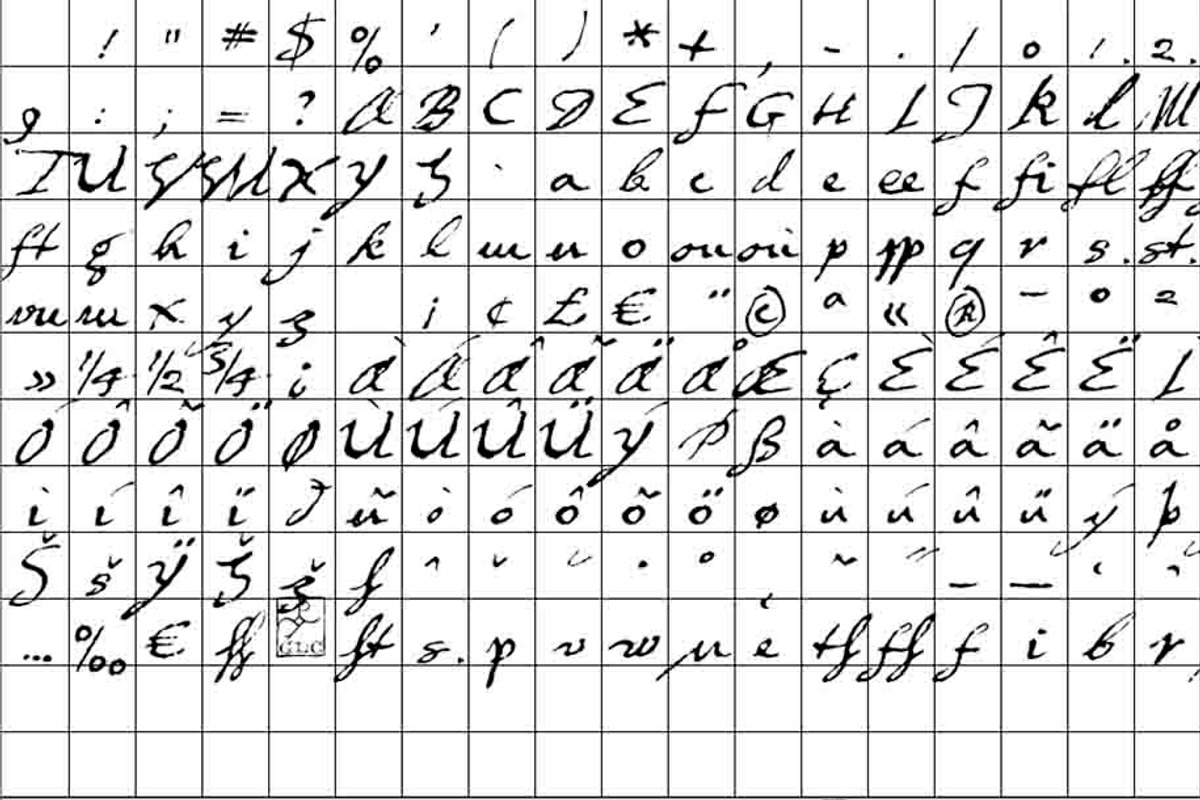 ! " # $ % ' ( ) * + , - . / 0 1. 2.
9 : ; = ? A B C D E F G H I J K L M
T U V W X Y Z ` a b c d e ee f fi fl ff
ft g h i j k l m n o on où p pp q r s. st.
w x y z ¡ ¢ £ € ¨ © ª « ® ¯ º 2
» 1/4 1/2 3/4 ¿ À Á Â Ã Ä Å Æ Ç È É Ê Ë Ì
Ó Ô Õ Ö Ø Ù Ú Û Ü Ý Þ ß à á â ã ä å
ì í î ï ð ñ ò ó ô õ ö ø ù ú û ü ý þ
Š š Ÿ Ž ž ſ ˆ ˇ ˘ · ° ¸ ˜ ˝ – — ‘ ’
... ‰ € ſſ GLC ſt s. p v w µ e th ff f i b r